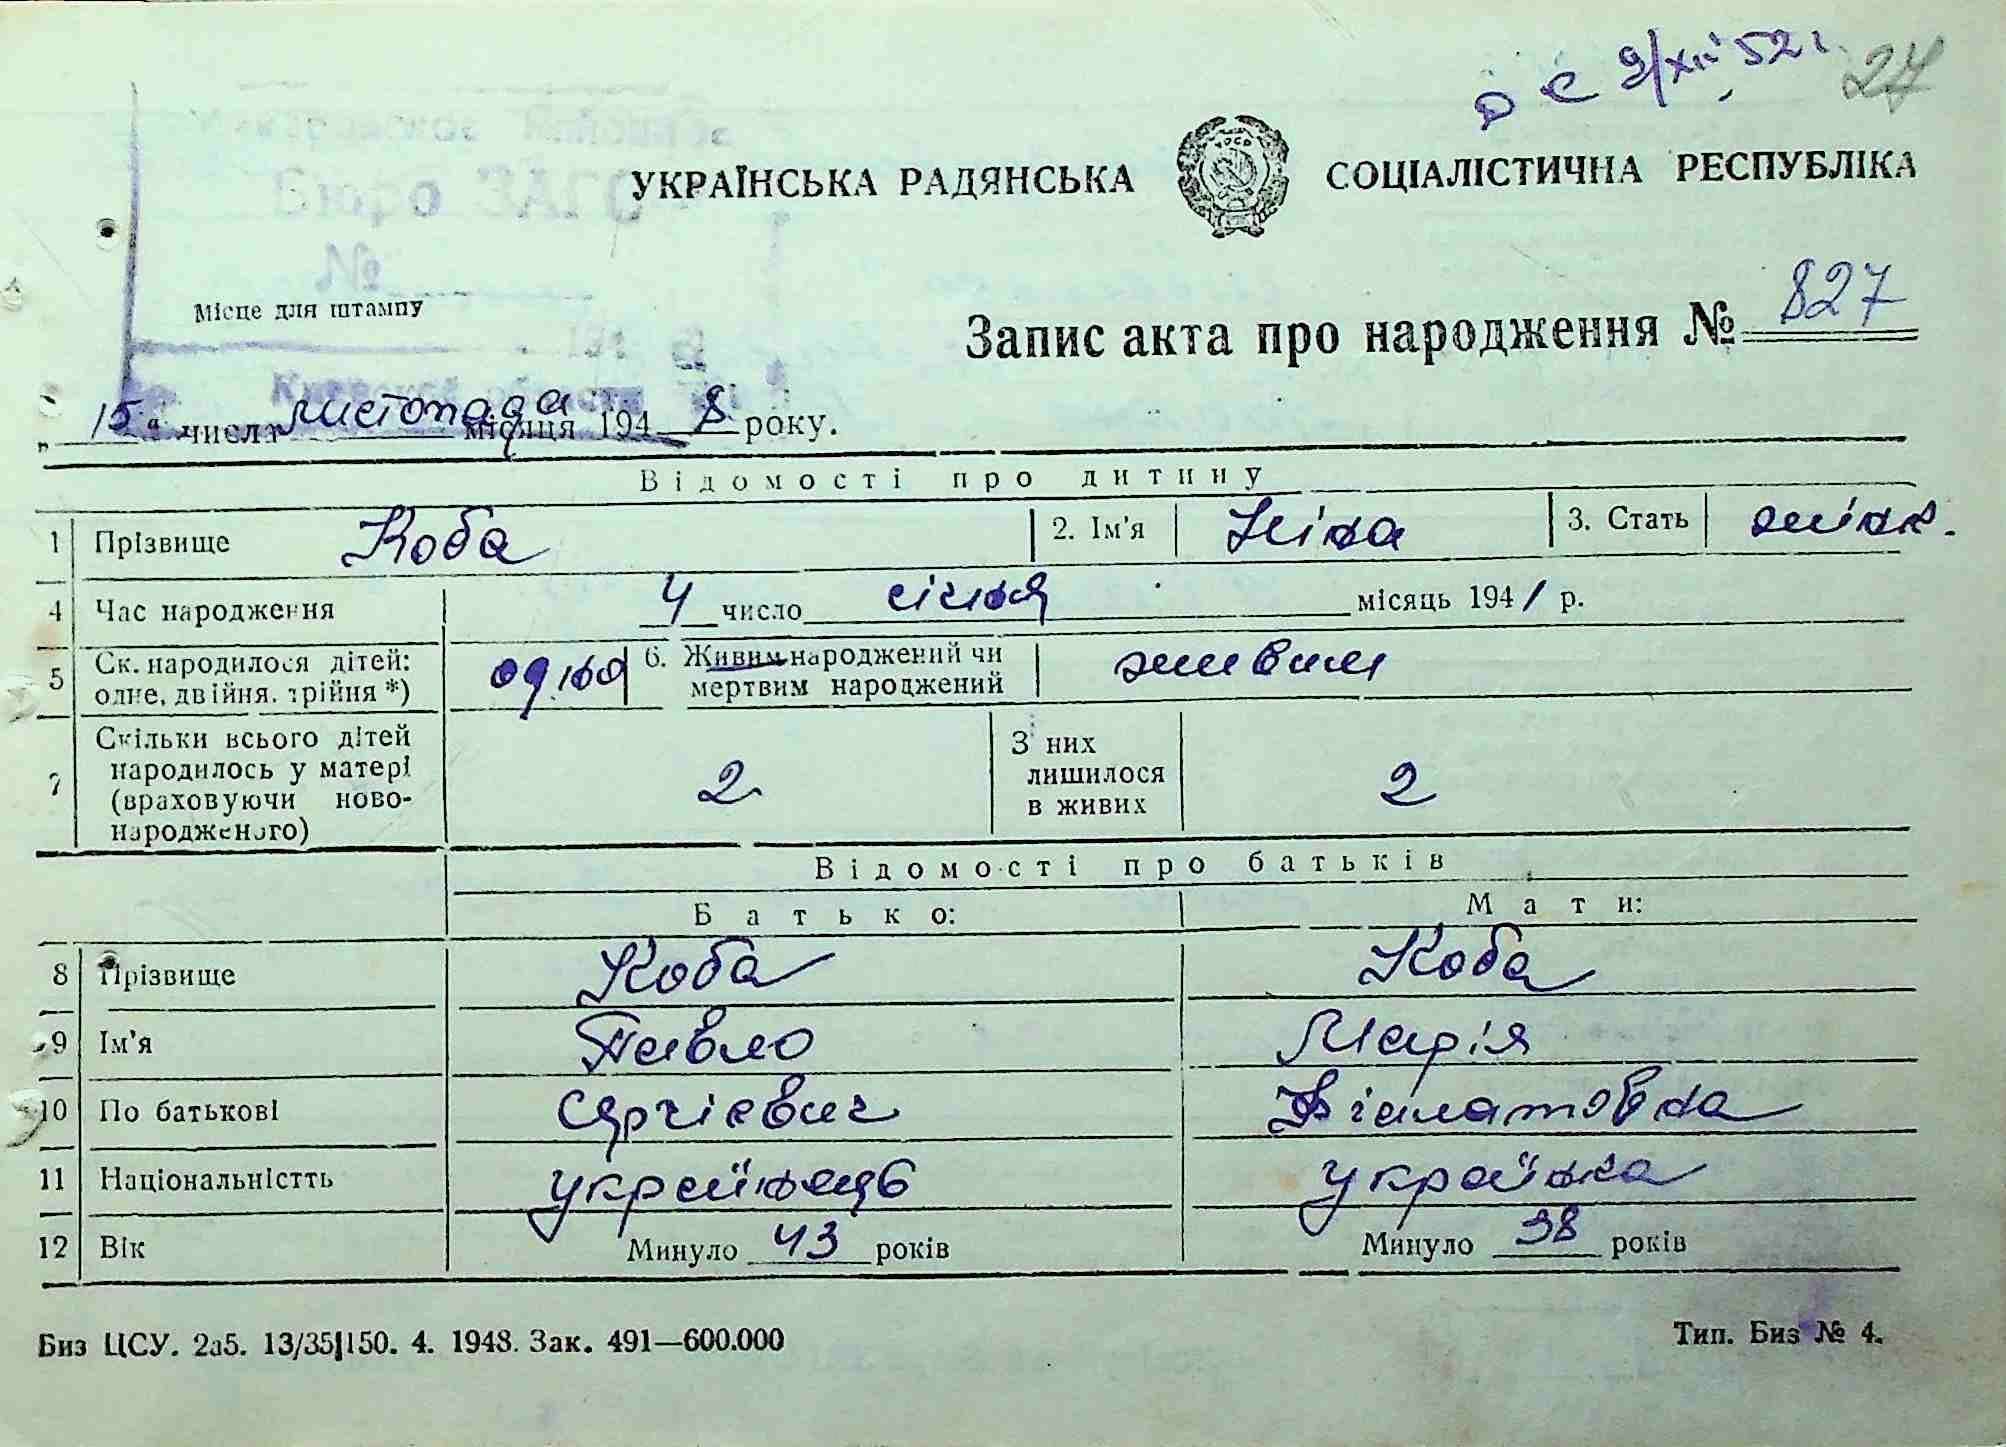 с 9/XII 52 г. 27
Районне
Бюро ЗАГС
№
УКРАЇНСЬКА РАДЯНСЬКА СОЦІАЛІСТИЧНА РЕСПУБЛІКА
Місце для штампу
Запис акта про народження № 827
„15“ числа листопада місяця 1948 року.
Відомості про дитину
1 Прізвище Коба 2. Ім'я Ніна 3. Стать жіноч.
4 Час народження 4 число січня місяць 1941 р.
5 Ск. народилося дітей: одне, двійня, трійня *) одно 6. Живим народжений чи мертвим народжений живим
7 Скільки всього дітей народилось у матері (враховуючи ново-народженого) 2 З них лишилося в живих 2
Відомості про батьків
Батько: Мати:
8 Прізвище Коба Коба
9 Ім'я Павло Марія
10 По батькові Сергієвич
11 Національністть українець українка
12 Вік Минуло 43 років Минуло 38 років
Биз ЦСУ. 2а5. 13/35|150. 4. 1948. Зак. 491—600.000 Тип. Биз № 4.